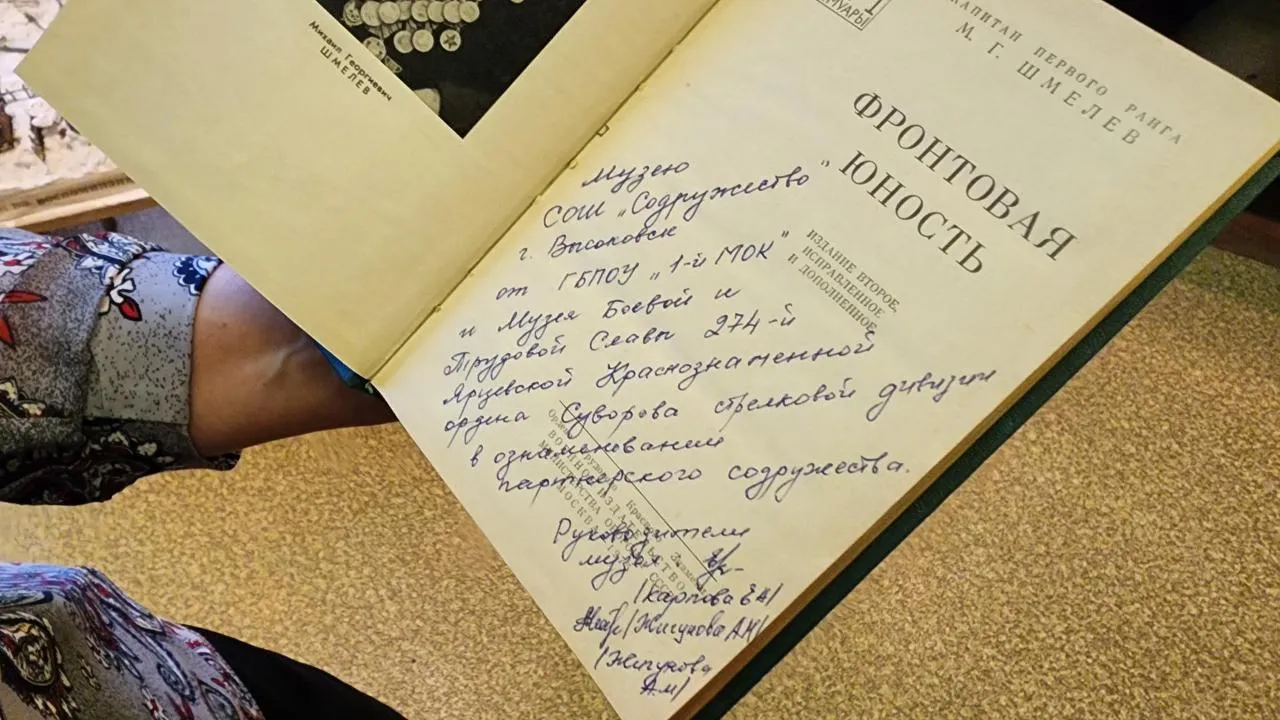 Михаил Георгиевич
ШМЕЛЕВ
МУАРЫ
КАПИТАН ПЕРВОГО РАНГА
М. Г. ШМЕЛЕВ
ФРОНТОВАЯ
ЮНОСТЬ
ИЗДАНИЕ ВТОРОЕ,
ИСПРАВЛЕННОЕ
И ДОПОЛНЕННОЕ
Музею
СОШ „Содружество"
г. Высоковск
от ГБПОУ „1-й МОК"
и Музея Боевой и
Трудовой Славы 274-й
Ярцевской Краснознаменной
ордена Суворова стрелковой дивизии
в ознаменовании
партнерского содружества.
Руководители
музея
/Карпова Е.Н/
/Жигунова А.М/
/Жигунова
А.М/